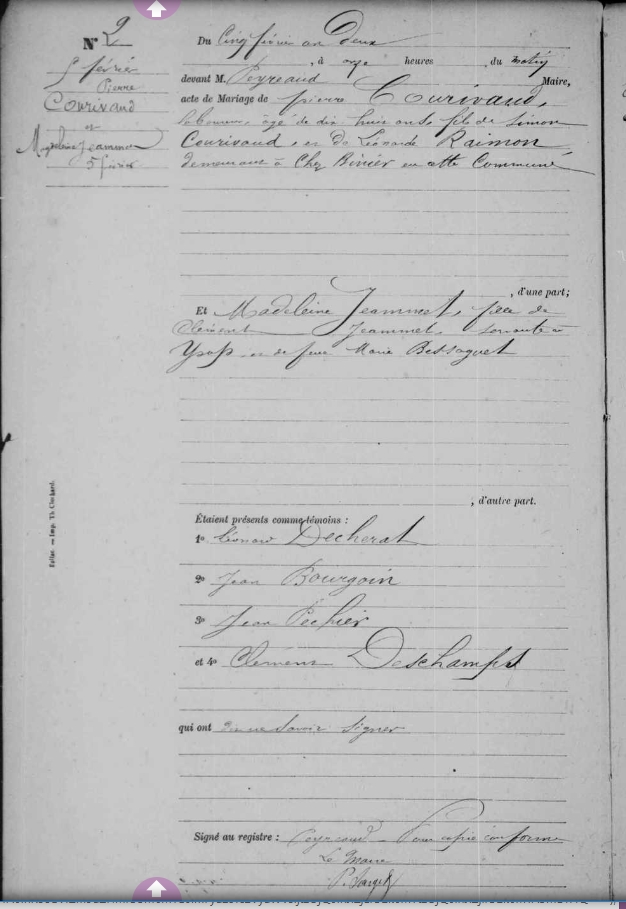 N° 2
5 février
Pierre
Courivaud
et
Magdeleine Jeammet
5 février
Du Cinq février an Deux
, à onze heures du matin
devant M. Peyreaud Maire,
acte de Mariage de pierre Courivaud,
laboureur, âgé de dix huit ans, fils de Simon
Courivaud, et de Léonarde Raimon
demeurant à Chez en cette Commune
, d'une part;
Et Madeleine Jeammet, fille de
Clément Jeammet,
et de feue Marie Bessaguet
, d'autre part.
Étaient présents comme témoins :
1° Léonard Decherat
2° Jean Bourgoin
3° Jean Pechier
et 4° Clément Deschamps
qui ont savoir signer
Signé au registre : Peyreaud Pour copie conforme
Le Maire
Bellac. — Imp. Th.